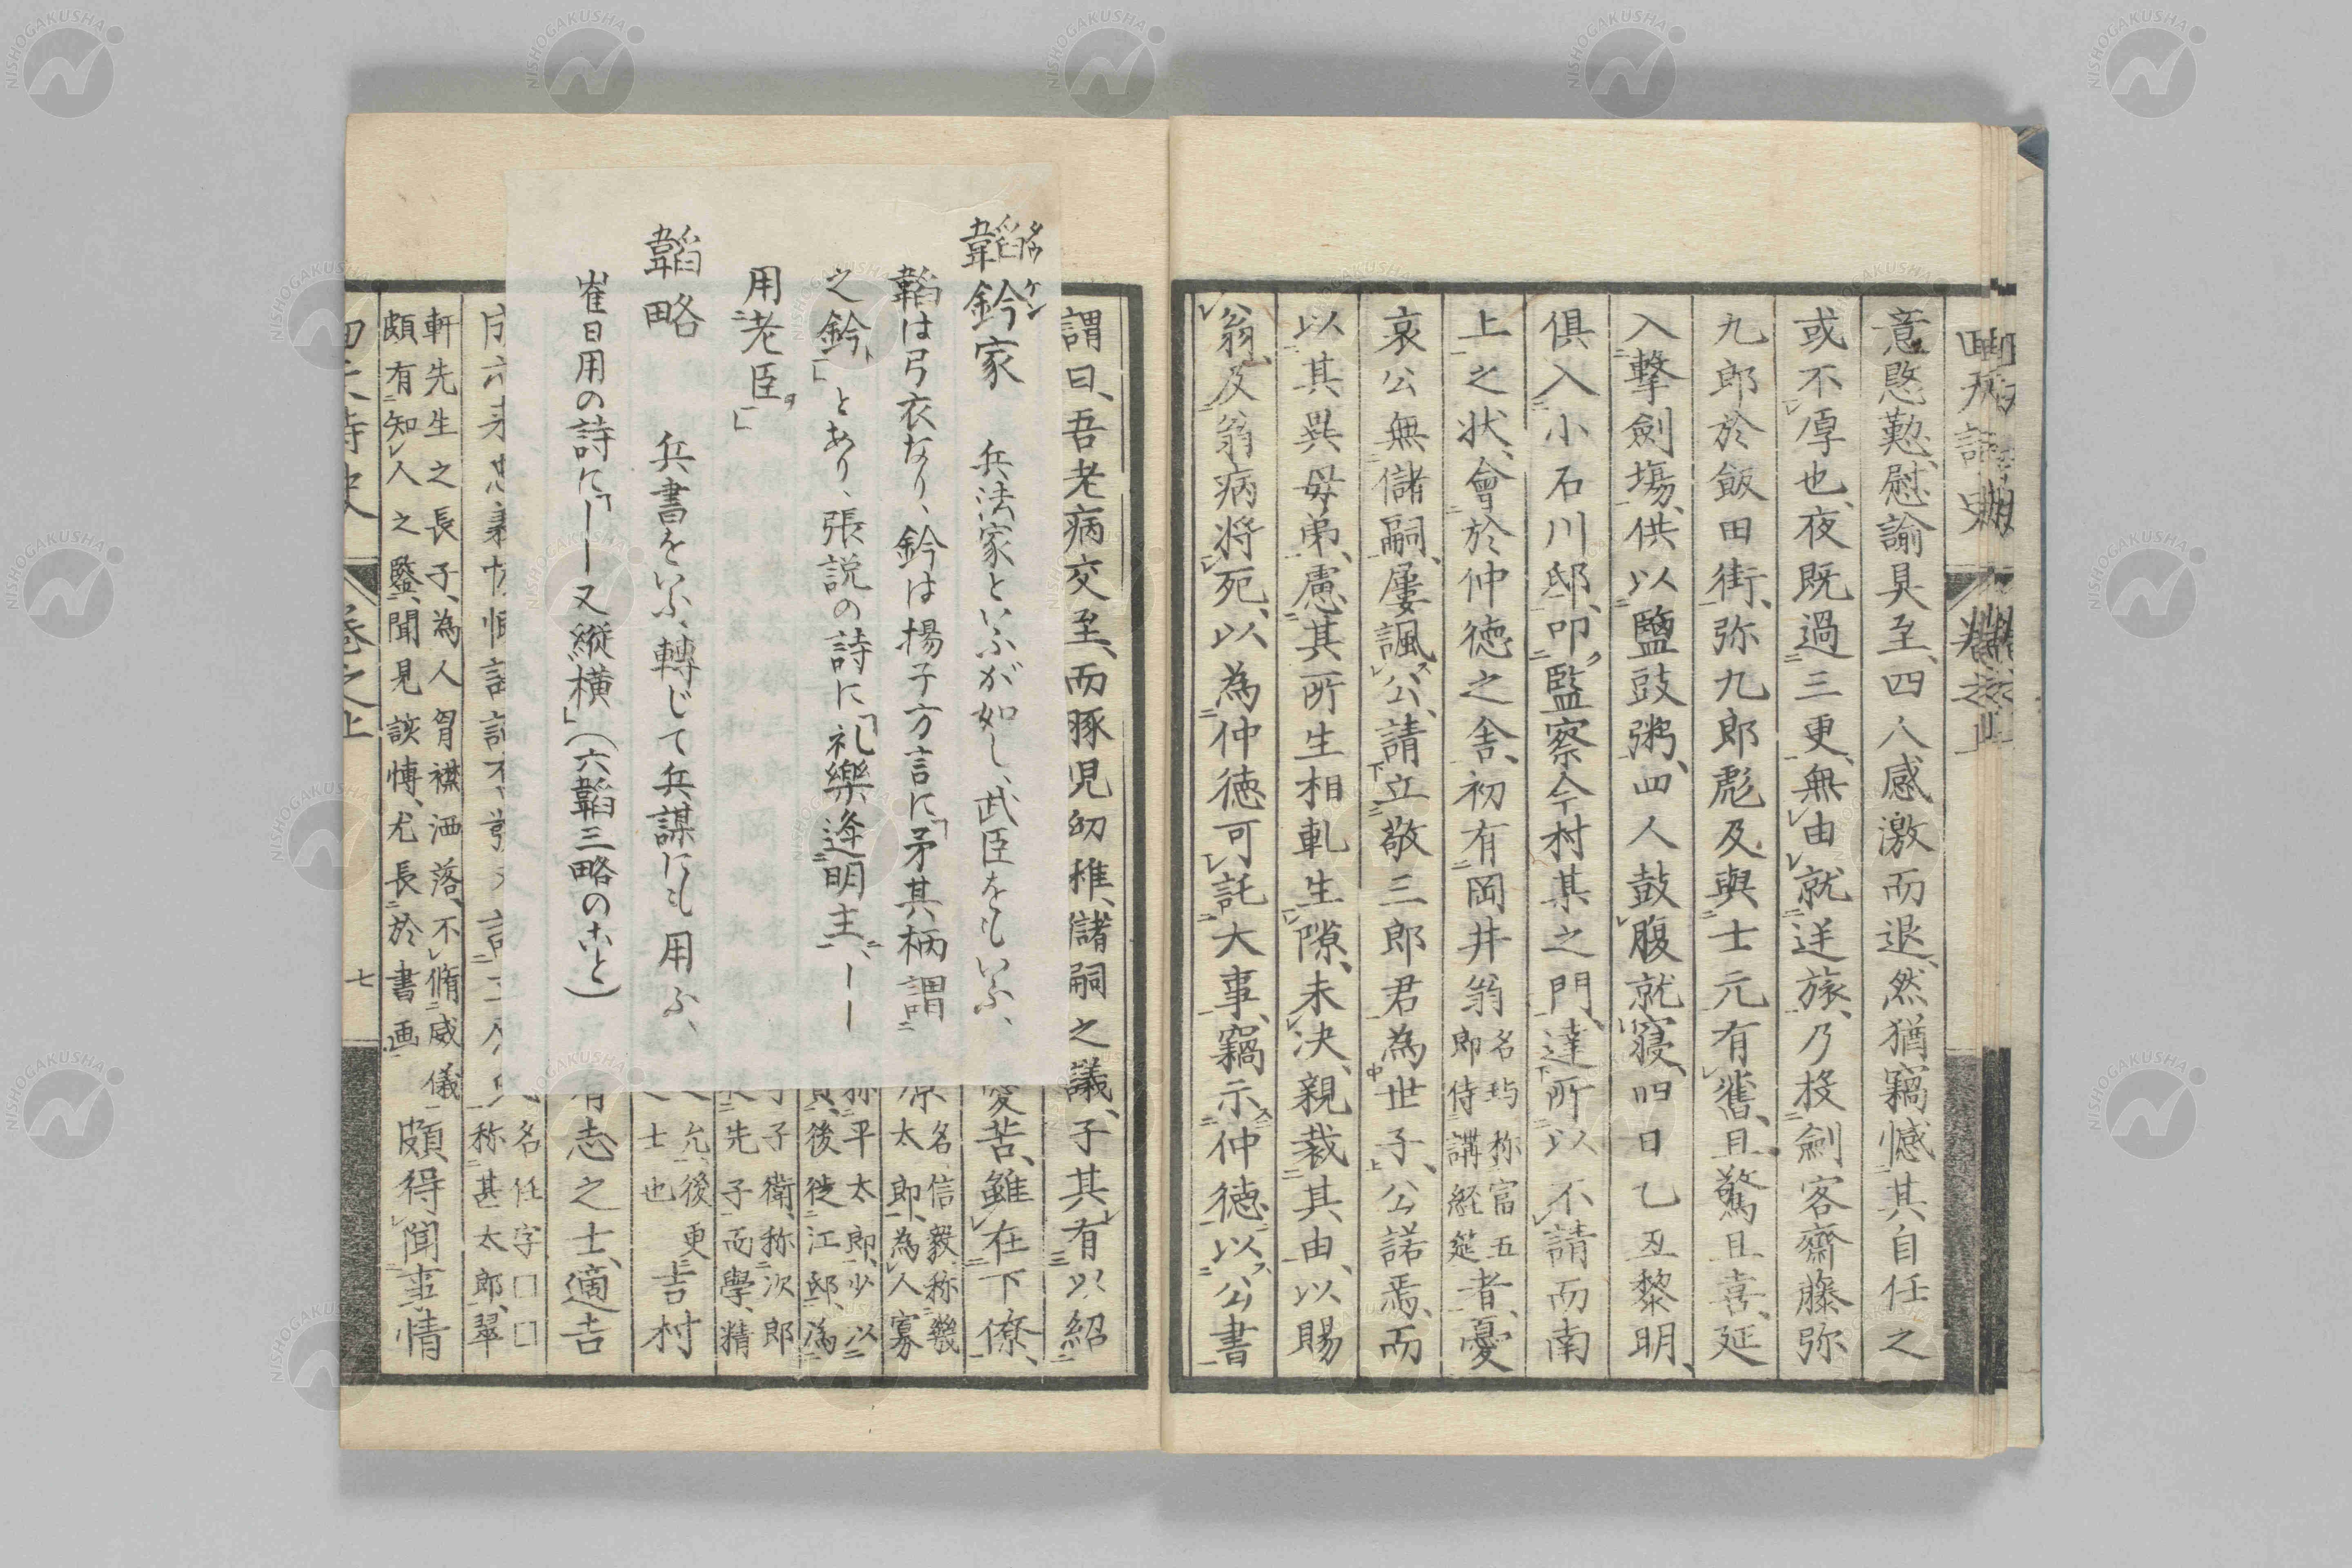 意慇懃、慰諭具至、四人感激而退、然猶竊憾其自任之
或不厚也、夜既過三更、無由就逆旅、乃投劍客齋藤弥
九郎於飯田街、弥九郎彪及與士元有舊、且驚且喜、延
入擊劍場、供以鹽豉粥、四人鼓腹就寝、四日乙丑黎明、
俱入小石川邸、叩監察今村某之門、達所以不請而南
上之状、會於仲徳之舎、初有岡井翁名𤣱称富五郎侍講経筵者、憂
哀公無儲嗣、屢諷公、請立敬三郎君為世子、公諾焉、而
以其異母弟、慮其所生相軋生隙、未决、親裁其由、以賜
翁、及翁病将死、以為仲徳可託大事、竊示仲徳以公書
謂曰、吾老病交至、而豚児幼稚、儲嗣之議、子其有以紹
憂苦、雖在下僚、
原名信毅称幾太郎、為人寡
称平太郎、少以
後徙江邸、為
子衛、称次郎
先子而學、精
允、後更
士也
吉村
有志之士、適吉
名任字□□
称甚太郎、翠
軒先生之長子、為人胷襟洒落、不脩威儀
頗有知人之鑒、聞見該愽、尤長於書画
頗得聞事情
卷之上
七
韜鈐家　兵法家といふが如し、武臣をもいふ、
タウ ケン
韜は弓衣なり、鈐は揚子方言に「矛其柄謂
之鈐」とあり、張説の詩に「礼樂逢明主、――
用老臣。」
韜略　兵書をいふ、轉じて兵謀にも用ふ、
崔日用の詩に「――又縦横」（六韜三略のこと）